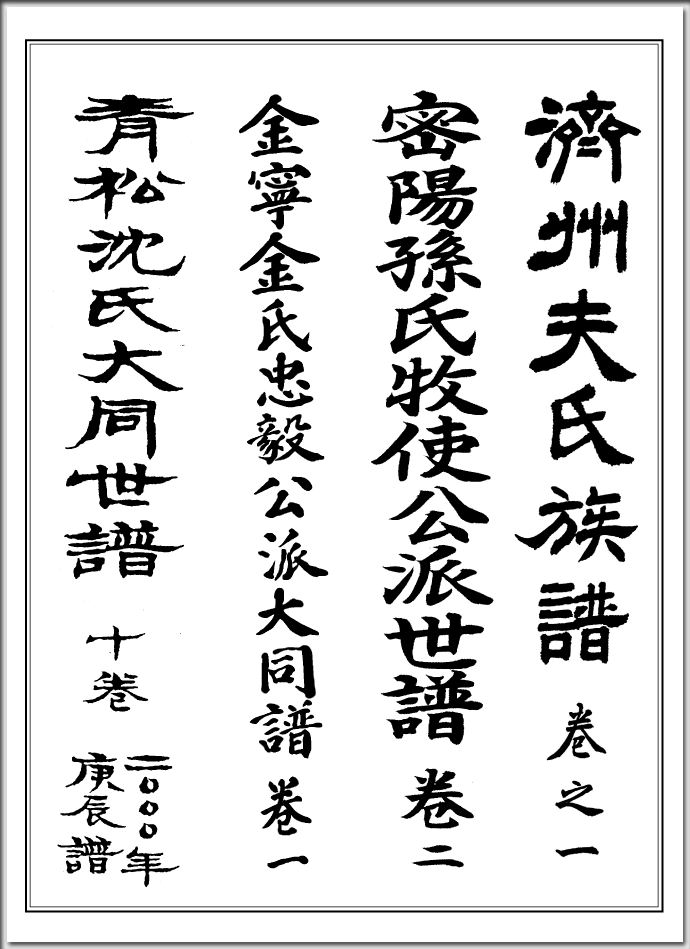 濟州夫氏族譜 卷之一
密陽孫氏牧使公派世譜 卷二
金寧金氏忠毅公派大同譜 卷一
青松沈氏大同世譜 十卷
二〇〇〇年
庚辰譜